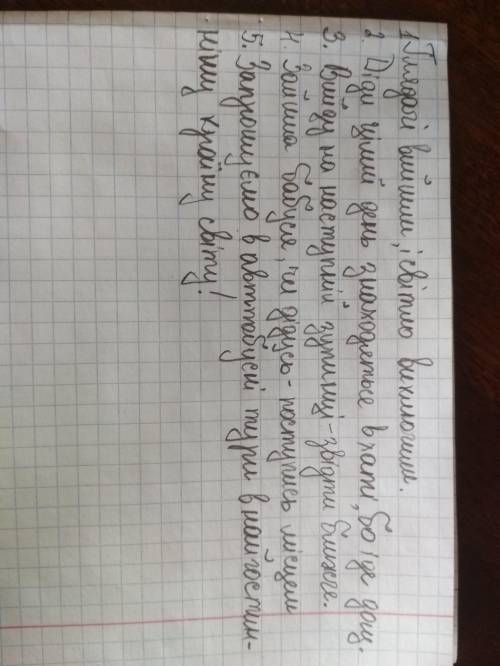 1. Глядачі вийшли, і світло виключили.
2. Діди цілий день знаходяться в хаті, бо іде дощ.
3. Вийду на наступній зупинці - звідти ближче.
4. Зайшла бабуся, чи дідусь - поступись місцем
5. Запрошуємо в автобусні тури в найгостин-
нішу країну світу!